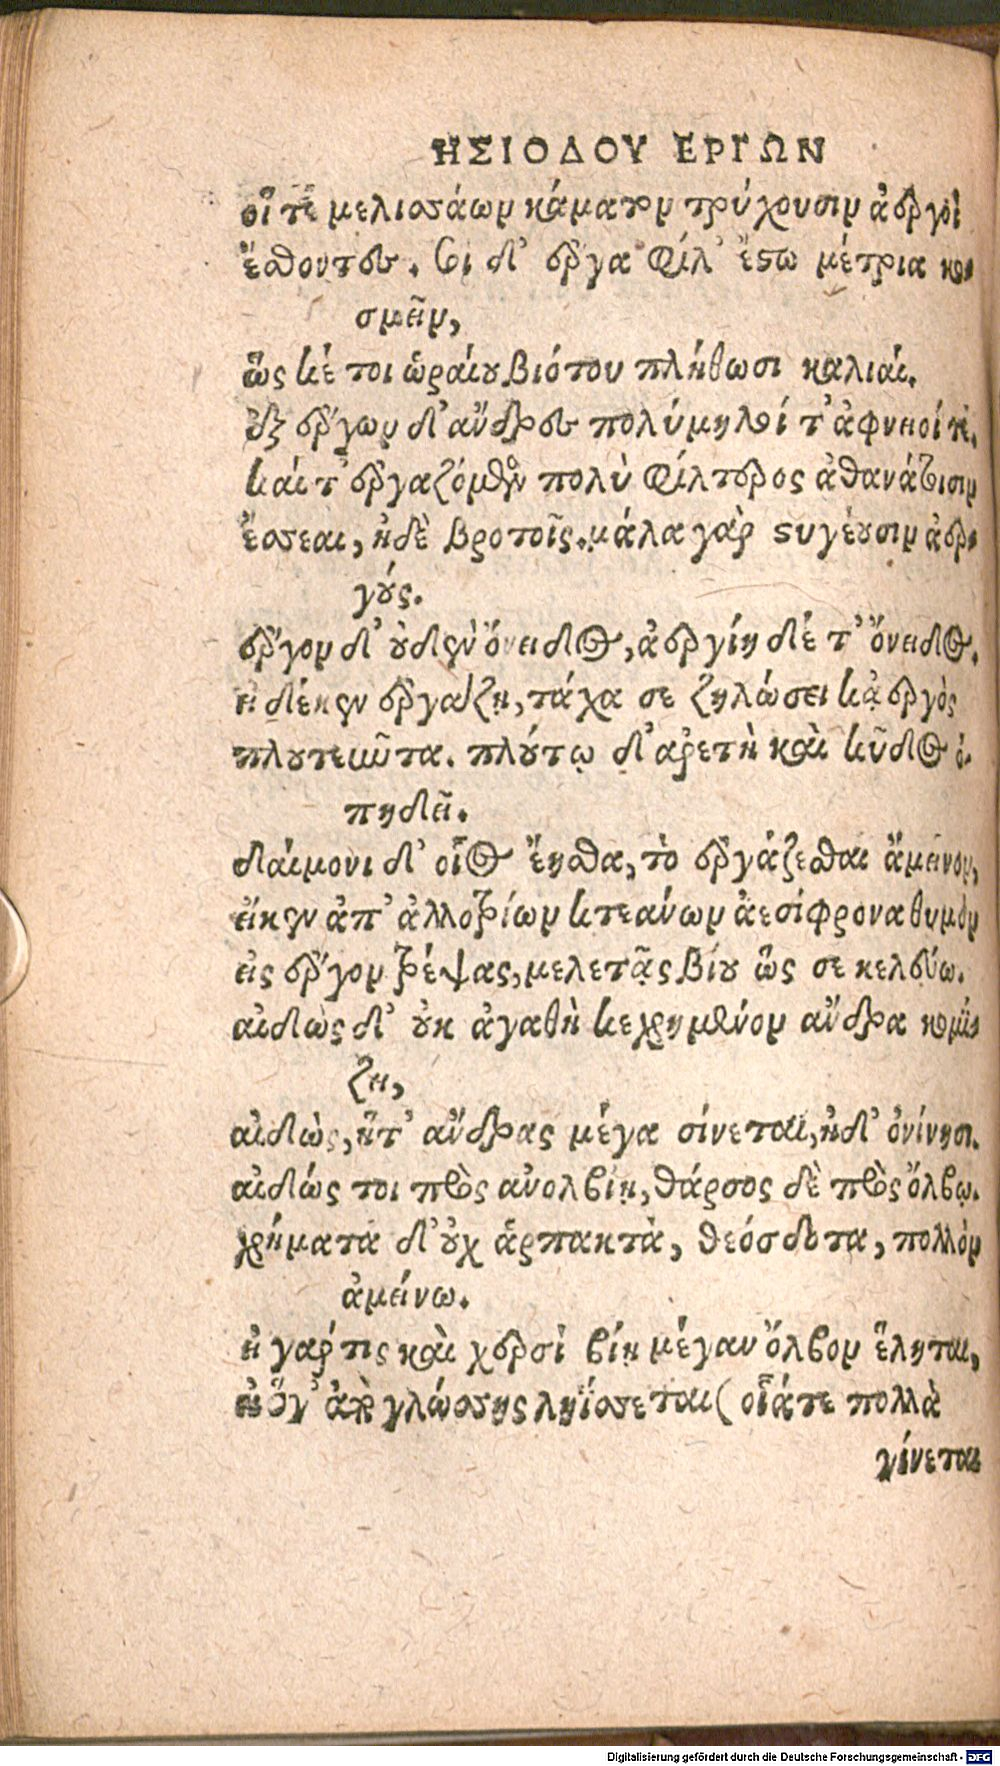 ΗΣΙΟΔΟΥ ΕΡΓΩΝ
οἵ τε μελισσάων κάματον τρύχουσιν ἀεργοὶ
ἔσθοντες. σοὶ δ' ἔργα φίλ' ἔστω μέτρια κο-
σμεῖν,
ὥς κέ τοι ὡραίου βιότου πλήθωσι καλιαί.
ἐξ ἔργων δ' ἄνδρες πολύμηλοί τ' ἀφνειοί τε.
καί τ' ἐργαζόμενον πολὺ φίλτερος ἀθανάτοισιν
ἔσσεαι, ἠδὲ βροτοῖς. μάλα γὰρ στυγέουσιν ἀερ-
γούς.
ἔργον δ' οὐδὲν ὄνειδος, ἀεργίη δέ τ' ὄνειδος.
εἰ δέ κεν ἐργάζῃ, τάχα σε ζηλώσει κᾀεργὸς
πλουτεῦντα. πλούτῳ δ' ἀρετὴ καὶ κῦδος ὀ-
πηδεῖ.
δαίμονι δ' οἷος ἔησθα, τὸ ἐργάζεσθαι ἄμεινον,
εἴ κεν ἀπ' ἀλλοτρίων κτεάνων ἀεσίφρονα θυμὸν
εἰς ἔργον τρέψας, μελετᾷς βίου ὥς σε κελεύω.
αἰδὼς δ' οὐκ ἀγαθὴ κεχρημένον ἄνδρα κομί-
ζει,
αἰδὼς, ἥτ' ἄνδρας μέγα σίνεται, ἠδ' ὀνίνησι.
αἰδώς τοι πρὸς ἀνολβίῃ, θάρσος δὲ πρὸς ὄλβῳ.
χρήματα δ' οὐχ ἁρπακτὰ, θεόσδοτα, πολλὸν
ἀμείνω.
εἰ γάρ τις καὶ χερσὶ βίῃ μέγαν ὄλβον ἕληται,
εἰ ὅγ' ἀπὸ γλώσσης ληΐσσεται (οἷά τε πολλὰ
γίνεται
Digitalisierung gefördert durch die Deutsche Forschungsgemeinschaft - DFG